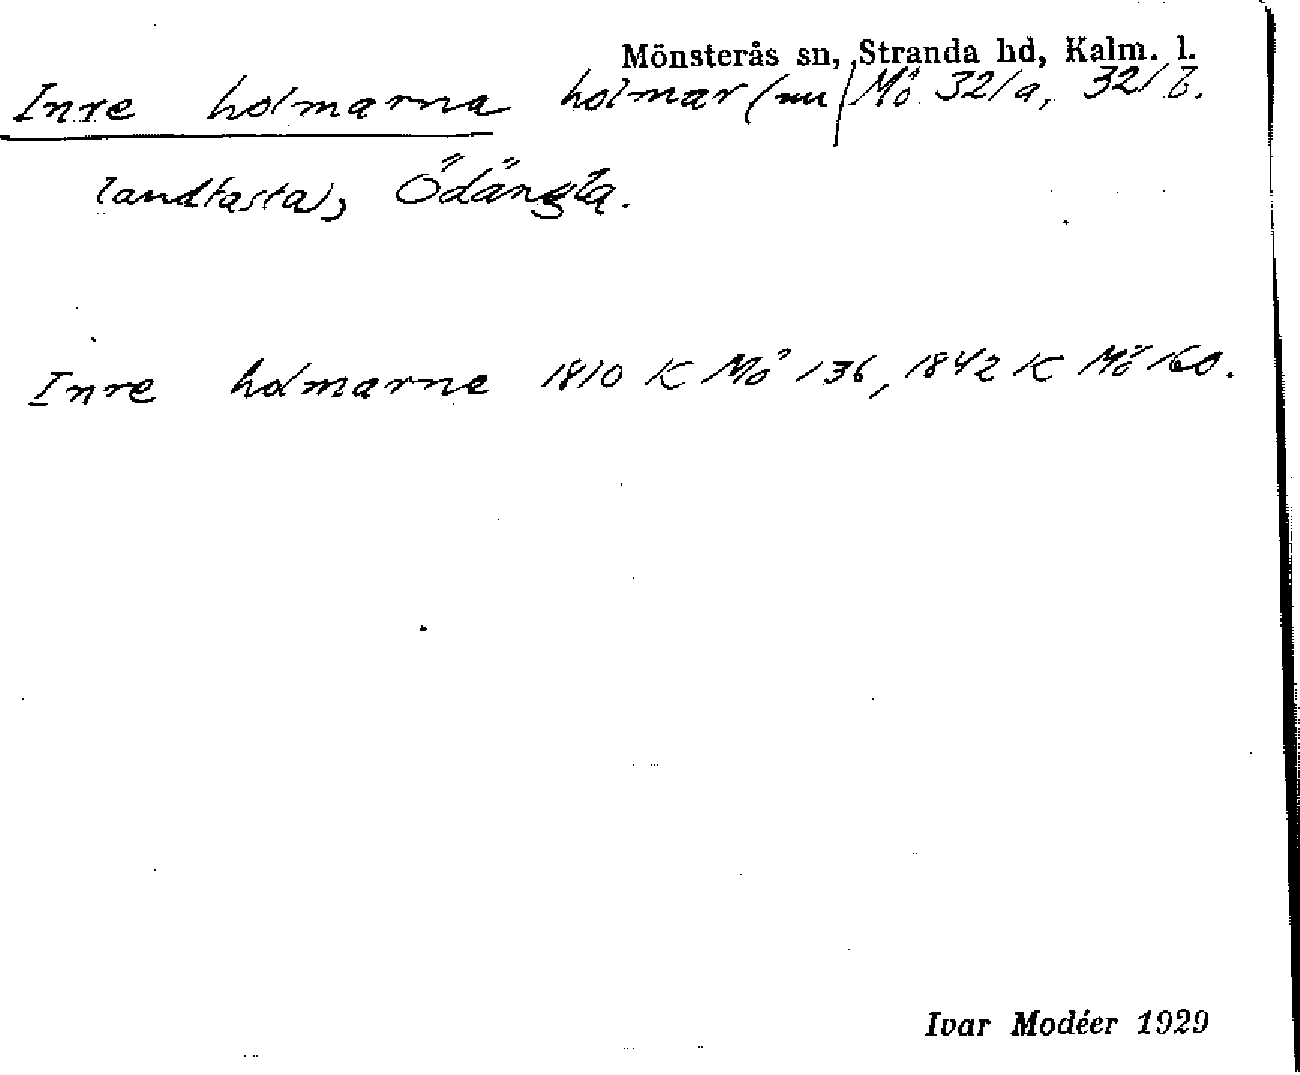 Mönsterås sn, Stranda hd, Kalm. l.
Inre holmarna holmar (nu / Mö 321a, 321b.
landfasta), Ödängla.
Inre holmarne 1810 K Mö 136, 1842 K Mö 160.
Ivar Modéer 1929